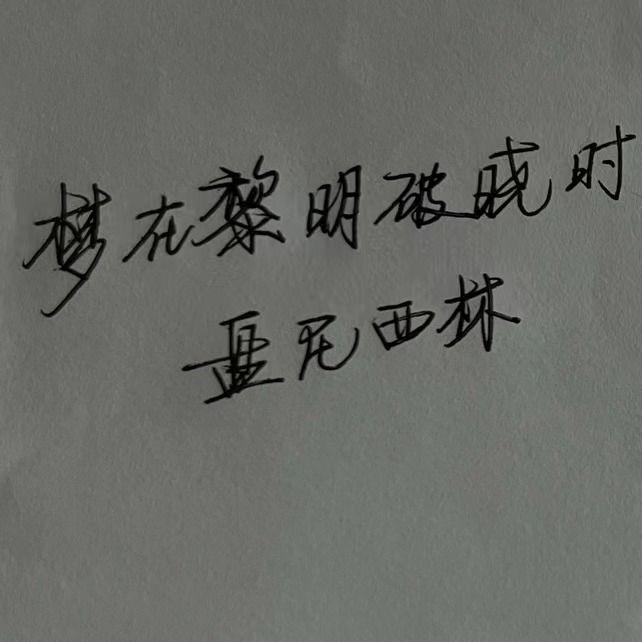 梦在黎明破晓时
盖尼西林